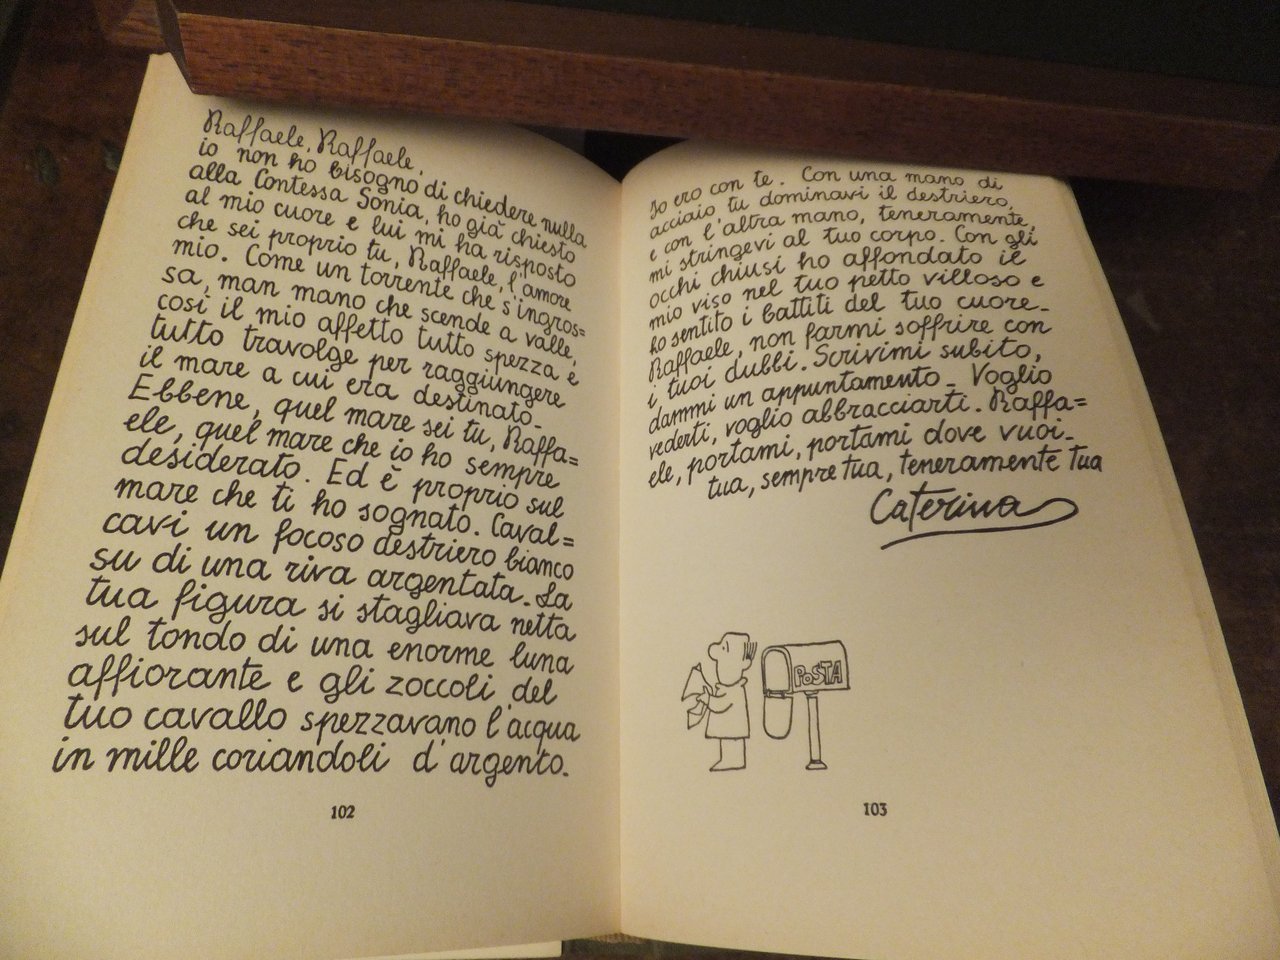 Raffaele, Raffaele,
io non ho bisogno di chiedere nulla
alla Contessa Sonia, ho già chiesto
al mio cuore e lui mi ha risposto
che sei proprio tu, Raffaele, l'amore
mio. Come un torrente che s'ingros=
sa, man mano che scende a valle,
così il mio affetto tutto spezza e
tutto travolge per raggiungere
il mare a cui era destinato_
Ebbene, quel mare sei tu, Raffa=
ele, quel mare che io ho sempre
desiderato. Ed è proprio sul
mare che ti ho sognato. Caval=
cavi un focoso destriero bianco
su di una riva argentata. La
tua figura si stagliava netta
sul tondo di una enorme luna
affiorante e gli zoccoli del
tuo cavallo spezzavano l'acqua
in mille coriandoli d'argento.
102
Io ero con te. Con una mano di
acciaio tu dominavi il destriero,
e con l'altra mano, teneramente,
mi stringevi al tuo corpo. Con gli
occhi chiusi ho affondato il
mio viso nel tuo petto villoso e
ho sentito i battiti del tuo cuore_
Raffaele, non farmi soffrire con
i tuoi dubbi. Scrivimi subito,
dammi un appuntamento_ Voglio
vederti, voglio abbracciarti. Raffa=
ele, portami, portami dove vuoi_
tua, sempre tua, teneramente tua
Caterina
POSTA
103